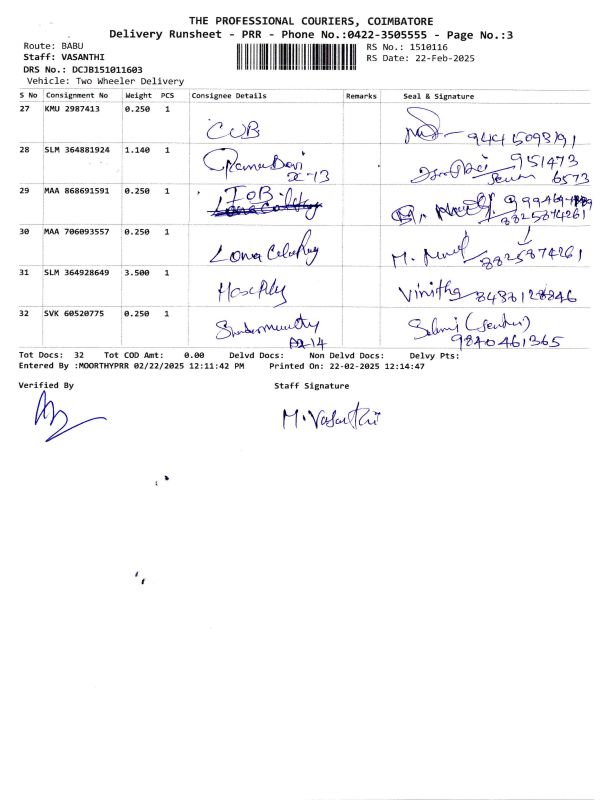 THE PROFESSIONAL COURIERS, COIMBATORE
Delivery Runsheet - PRR - Phone No.:0422-3505555 - Page No.:3
Route: BABU
RS No.: 1510116
Staff: VASANTHI
RS Date: 22-Feb-2025
DRS No.: DCJB151011603
Vehicle: Two Wheeler Delivery
S No Consignment No Weight PCS Consignee Details Remarks Seal & Signature
27 KMU 2987413 0.250 1
CUB
28 SLM 364881924 1.140 1
951473
6573
29 MAA 868691591 0.250 1
IOB
8825874261
30 MAA 706093557 0.250 1
8825874261
31 SLM 364928649 3.500 1
Vinitha 8438128846
32 SVK 60520775 0.250 1
9840461365
Tot Docs: 32 Tot COD Amt: 0.00 Delvd Docs: Non Delvd Docs: Delvy Pts:
Entered By :MOORTHYPRR 02/22/2025 12:11:42 PM Printed On: 22-02-2025 12:14:47
Verified By Staff Signature
M. Vasanthi